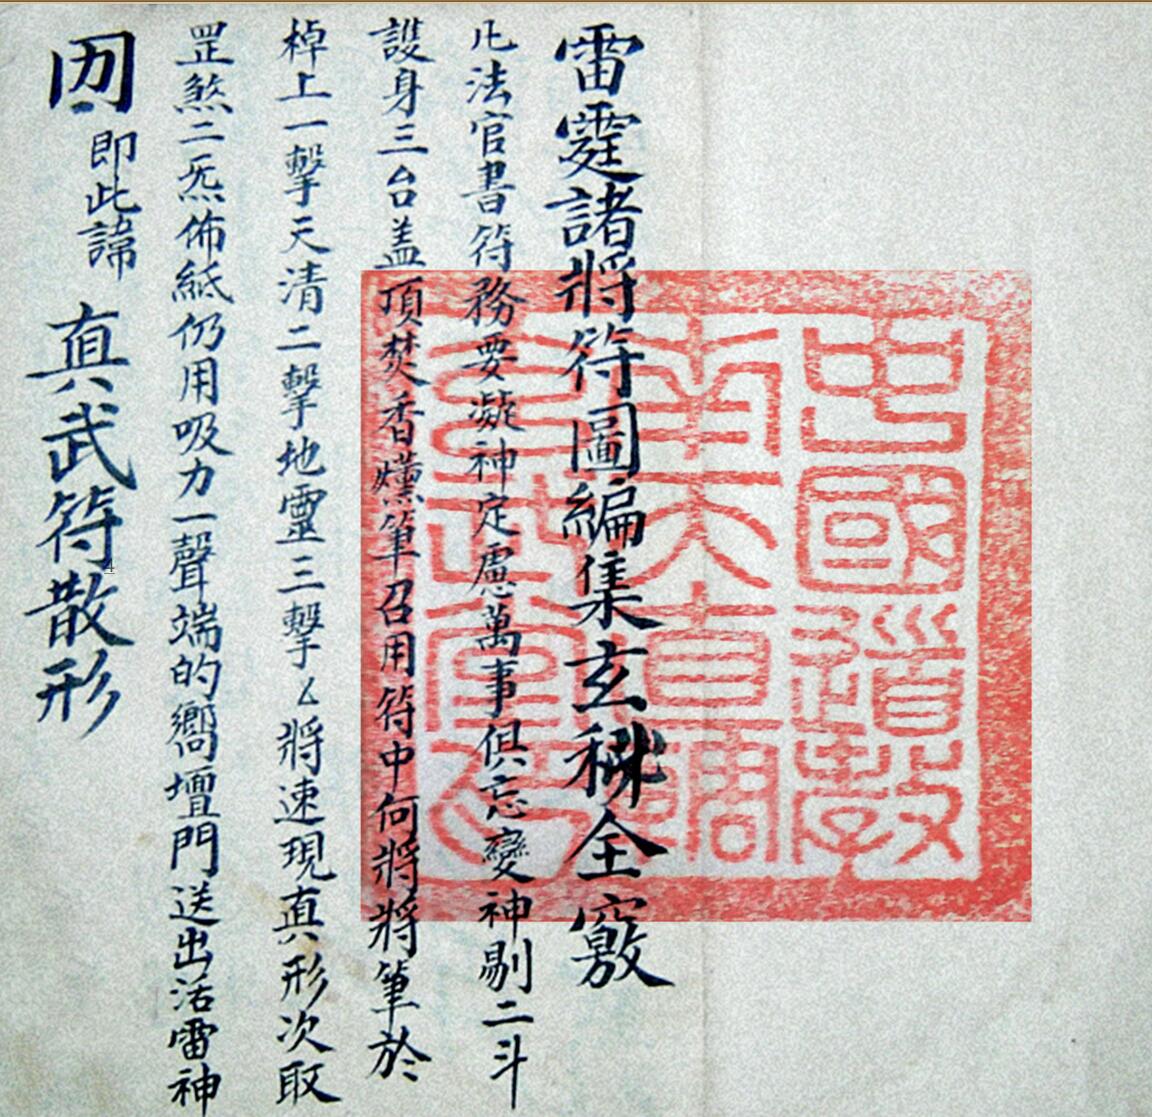 雷霆諸將符圖編集玄秘全竅
凡法官書符務要凝神定慮萬事俱忘變神剔二斗
護身三台盖頂焚香爐筆召用符中何將將筆於
棹上一擊天清二擊地靈三擊厶將速現真形次取
罡煞二炁佈紙仍用吸力一聲端的嚮壇門送出活雷神
即此諱 真武符散形
中國道教